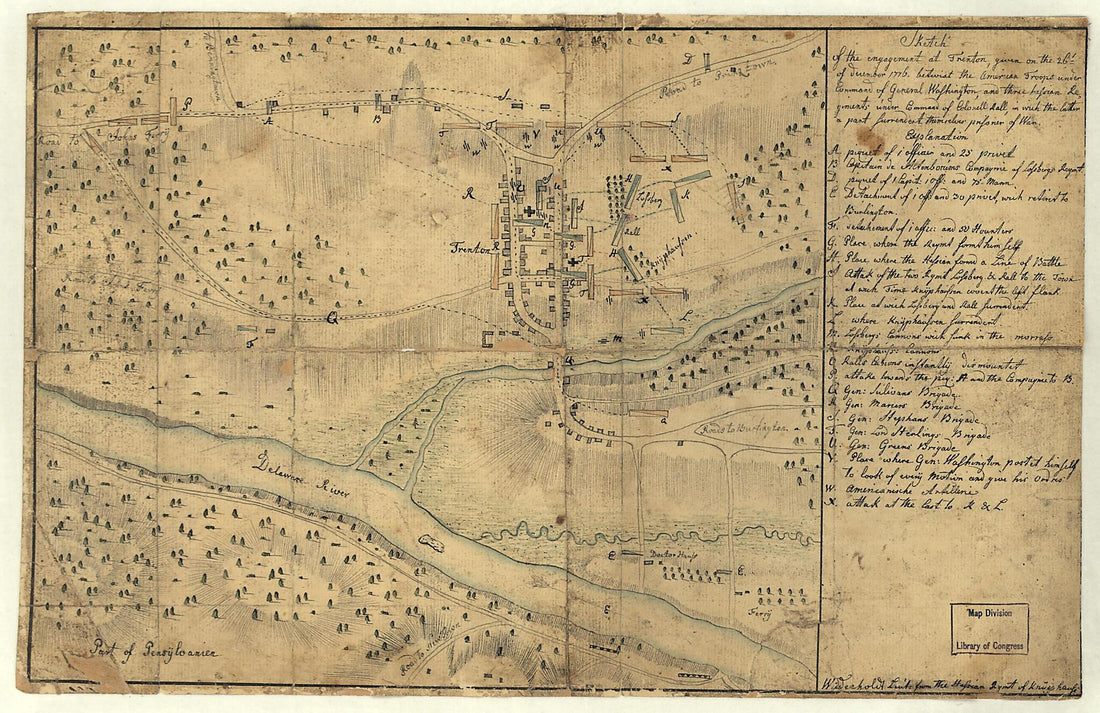 Sketch
of the engagement at Trenton, given on the 26t
of december 1776. betwixt the American Troops under
Command of General Washington, and three hessian Re
gments, under Command of Colonell Rall in wich the latter
a part surrendert themselves prisoner of War.
Explanation
A piquet of 1 officer and 25 privet
B Captain de Altenbocums Compagnie of Losberg Regmt
D. piquet of 1 Capit: 1 offr: and 75. Mann.
E Detachment of 1 off: and 30 privet, wich retiret to
Burlington.
F. detachement of 1 offic: and 50 Hounters
G. Place where the Regmt formt him self
H. Place where the Hessian formd a Line of Battle
J Attak of the two Regmt Losberg & Rall to the Town
at wich Time Knÿphausen covert the left flank
K Place at wich Losberg and Rall Surrendert.
L. where Knÿphausen Surrendert
M. Losbergs Cannons wich sunk in the morrass
Knÿphauss: Cannons
O Ralls Canons instantly dismountet
P. attake towards the piq: A and the Compagnie to B.
Q Gen: Sulivans Brigade.
R Gen: Mercers Brigade
S. Gen: Stephans Brigade
T. Gen: Lord Sterlings Brigade
U. Gen: Greens Brigade
V. Place where Gen: Washington postet himself
to look of every Motion and give his Ordres
W. Amerikanische Artillerie
X. attak at the last to K & L.
Wiederholdt Lieut: from the Hessian Rgmt of Knÿphauss:
Map Division
Library of Congress
Road to Princtown.
D
S
P
A
B
Road to Johns Ferry
T
T
V
U
U
S
X
R
H
Losberg
K
Rall
Trenton
R
G
G
H
Knÿphausen.
X
L
m
Q
F
a
Road to Burlington
Delaware River
E
Doctor House
E
E
Ferry
Part of Pensÿlvanien